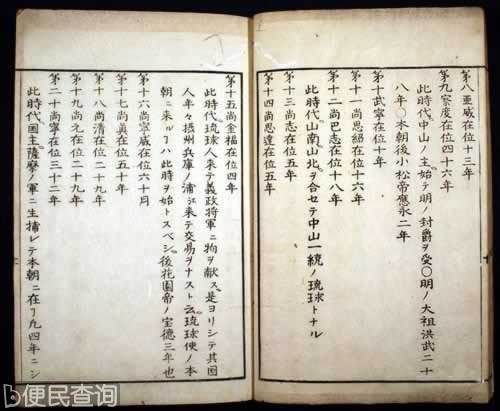 第八亜威在位十三年
第九察度在位四十六年
此時代中山ノ主始テ明ノ封爵ヲ受〇明ノ大祖洪武二十
八年〇本朝後小松帝應永二年
第十武寧在位十年
第十一尚思紹在位十六年
第十二尚巴志在位十八年
此時代山南山北ヲ合セテ中山一統ノ琉球トナル
第十三尚志在位五年
第十四尚思達在位五年
第十五尚金福在位四年
此時代琉球人来テ義政將軍ニ物ヲ献ス是ヨリシテ其國
人年々摂州兵庫ノ浦江来テ交易ヲナスト云琉球使ノ本
朝ニ来ルヿハ此時ヲ始トスベシ後花園帝ノ宝徳三年也
第十六尚寧威在位六十月
第十七尚眞在位五十年
第十八尚清在位二十九年
第十九尚元在位二十九年
第二十尚寧在位三十二年
此時代國主薩摩ノ軍ニ生捕レテ本朝ニ在ヿ凡四年ニシ
便民查询